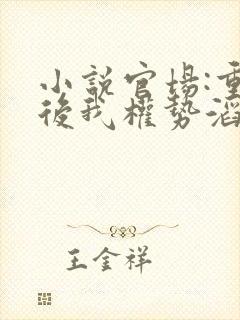 小説官場:重
後我權勢滔
王金祥